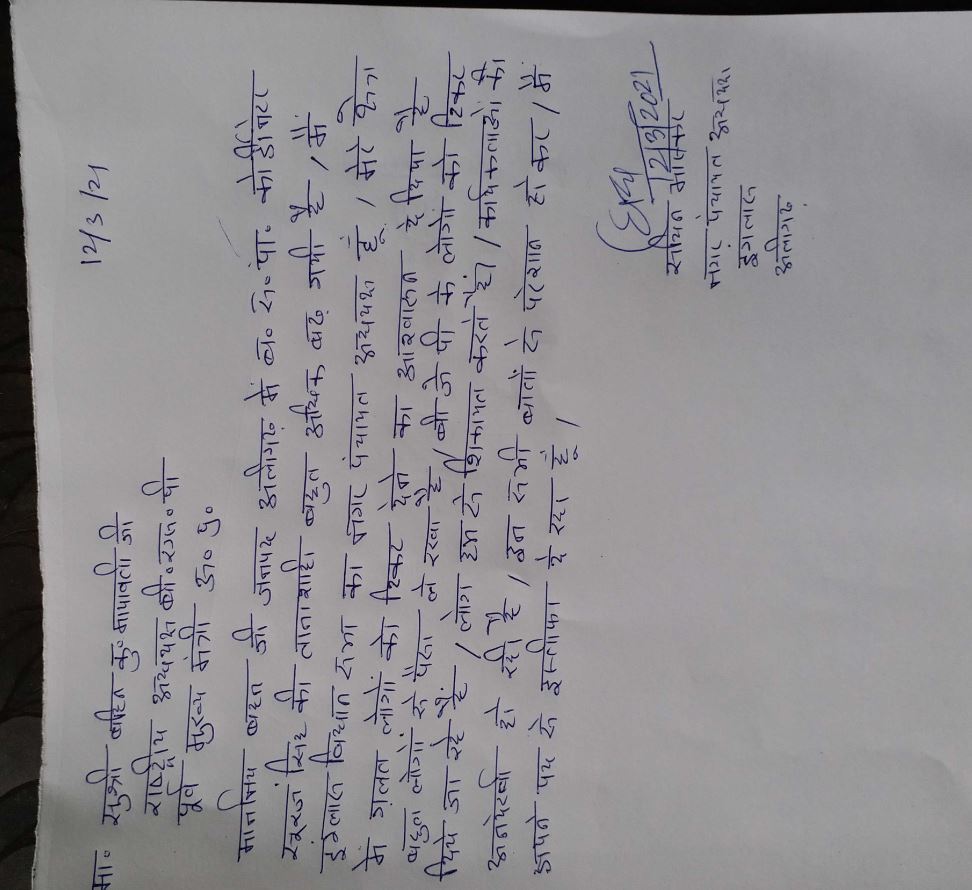 12/3/21
मा० सुश्री बहिन कु० मायावती जी
राष्ट्रीय अध्यक्ष बी०एस०पी
पूर्व मुख्य मंत्री उ० प्र०
माननिय बहन जी जनपद अलीगढ़ में ब० स० पा० कोर्डीनेटर
सूरज सिंह की तानाशाही बहुत अधिक बढ़ गयी है / मैं
इंगलास विधान सभा का नगर पंचायत अध्यक्ष हूँ / मेरे क्षेत्र
में ग़लत लोगों को टिकट देने का आश्वासन दे दिया है
बहुत लोगों से पैसा ले रखा है / बी जे पी के लोगों को टिकट
दिये जा रहे हैं / लोग हम से शिकायत करते हैं। / कार्यकर्ताओं की
अनदेखी हो रही है / इन सभी बातों से परेशान हो कर / मैं
अपने पद से इस्तीफा दे रहा हूँ /
12/3/2021
सचिन
नगर पंचायत अध्यक्ष
इगलास
अलीगढ़